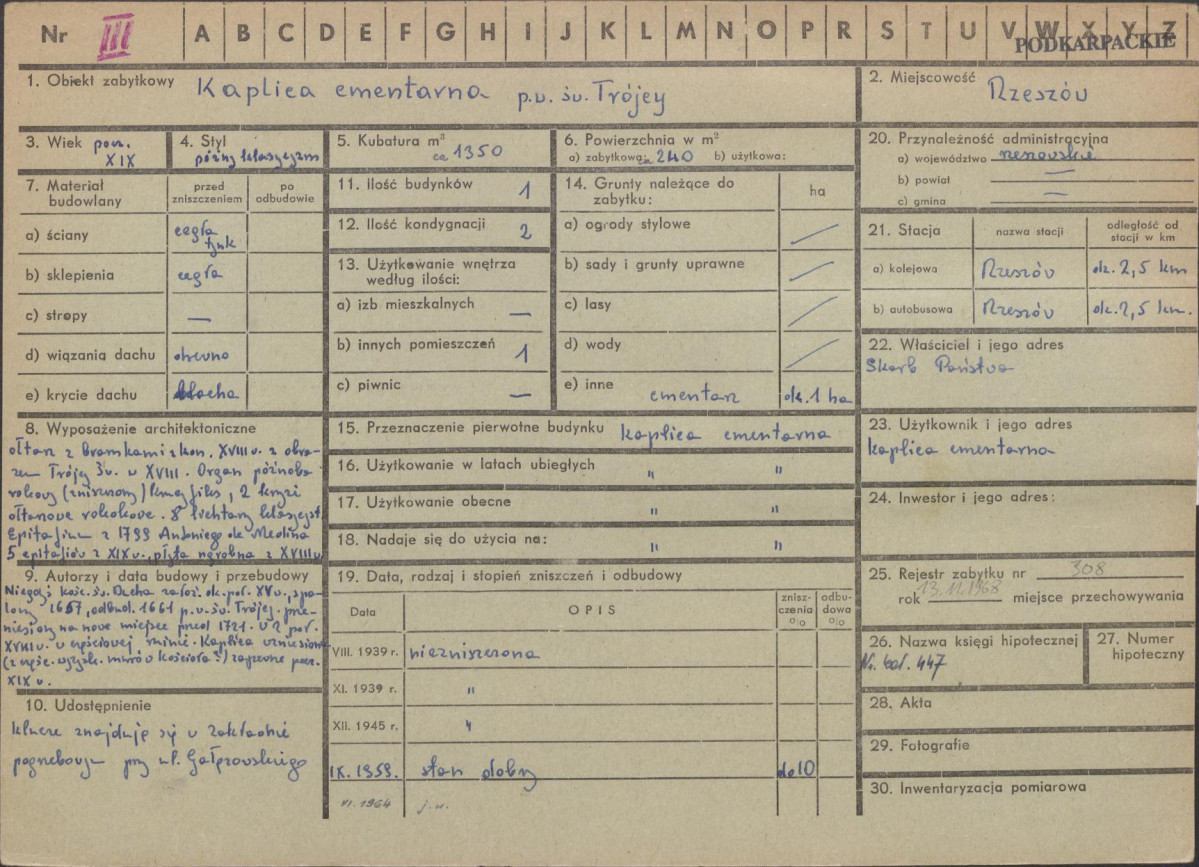 Nr III A B C D E F G H I J K L M N O P R S T U V W X Y Z
PODKARPACKIE
1. Obiekt zabytkowy Kaplica cmentarna p.w. św. Trójcy
2. Miejscowość Rzeszów
3. Wiek pocz. XIX
4. Styl późny klasycyzm
5. Kubatura m³ ca 1350
6. Powierzchnia w m²
a) zabytkowa: ca 240 b) użytkowa:
7. Materiał budowlany
przed zniszczeniem
po odbudowie
a) ściany cegła tynk
b) sklepienia cegła
c) stropy —
d) wiązania dachu drewno
e) krycie dachu blacha
8. Wyposażenie architektoniczne
ołtarz z bramkami z kon. XVIII w. z obra-
zem Trójcy Św. w XVIII. Organ późnoba-
rokowy (zniszczony) krucyfiks, 2 krzyże
ołtarzowe rokokowe. 8 lichtarzy klasycyst.
Epitafium z 1799 Antoniego de Medina
5 epitafiów z XIX w., płyta nagrobna z XVIII w.
9. Autorzy i data budowy i przebudowy
Niegdyś kość. św. Ducha założ. ok. poł. XV w., spa-
lony 1657, odbud. 1661 p.w. św. Trójcy. prze-
niesiony na nowe miejsce przed 1721. W 2 poł.
XVIII w. w częściowej ruinie. Kaplica wzniesiona
(z częśc. wyzysk. murów kościoła?) zapewne pocz.
XIX w.
10. Udostępnienie
klucze znajdują się w zakładzie
pogrzebowym przy ul.
11. Ilość budynków 1
12. Ilość kondygnacji 2
13. Użytkowanie wnętrza według ilości:
a) izb mieszkalnych —
b) innych pomieszczeń 1
c) piwnic —
14. Grunty należące do zabytku: ha
a) ogrody stylowe /
b) sady i grunty uprawne /
c) lasy /
d) wody /
e) inne cmentarz ok. 1 ha
15. Przeznaczenie pierwotne budynku kaplica cmentarna
16. Użytkowanie w latach ubiegłych " "
17. Użytkowanie obecne " "
18. Nadaje się do użycia na: " "
19. Data, rodzaj i stopień zniszczeń i odbudowy
Data OPIS znisz-czenia % odbu-dowa %
VIII. 1939 r. niezniszczona
XI. 1939 r. "
XII. 1945 r. "
IX. 1959. stan dobry do 10
VI. 1964 j.w.
20. Przynależność administracyjna
a) województwo rzeszowskie
b) powiat —
c) gmina —
21. Stacja nazwa stacji odległość od stacji w km
a) kolejowa Rzeszów ok. 2,5 km
b) autobusowa Rzeszów ok. 2,5 km.
22. Właściciel i jego adres
Skarb Państwa
23. Użytkownik i jego adres
kaplica cmentarna
24. Inwestor i jego adres:
25. Rejestr zabytku nr 308
rok 13.11.1968 miejsce przechowywania
26. Nazwa księgi hipotecznej
Nr. kat. 447
27. Numer hipoteczny
28. Akta
29. Fotografie
30. Inwentaryzacja pomiarowa